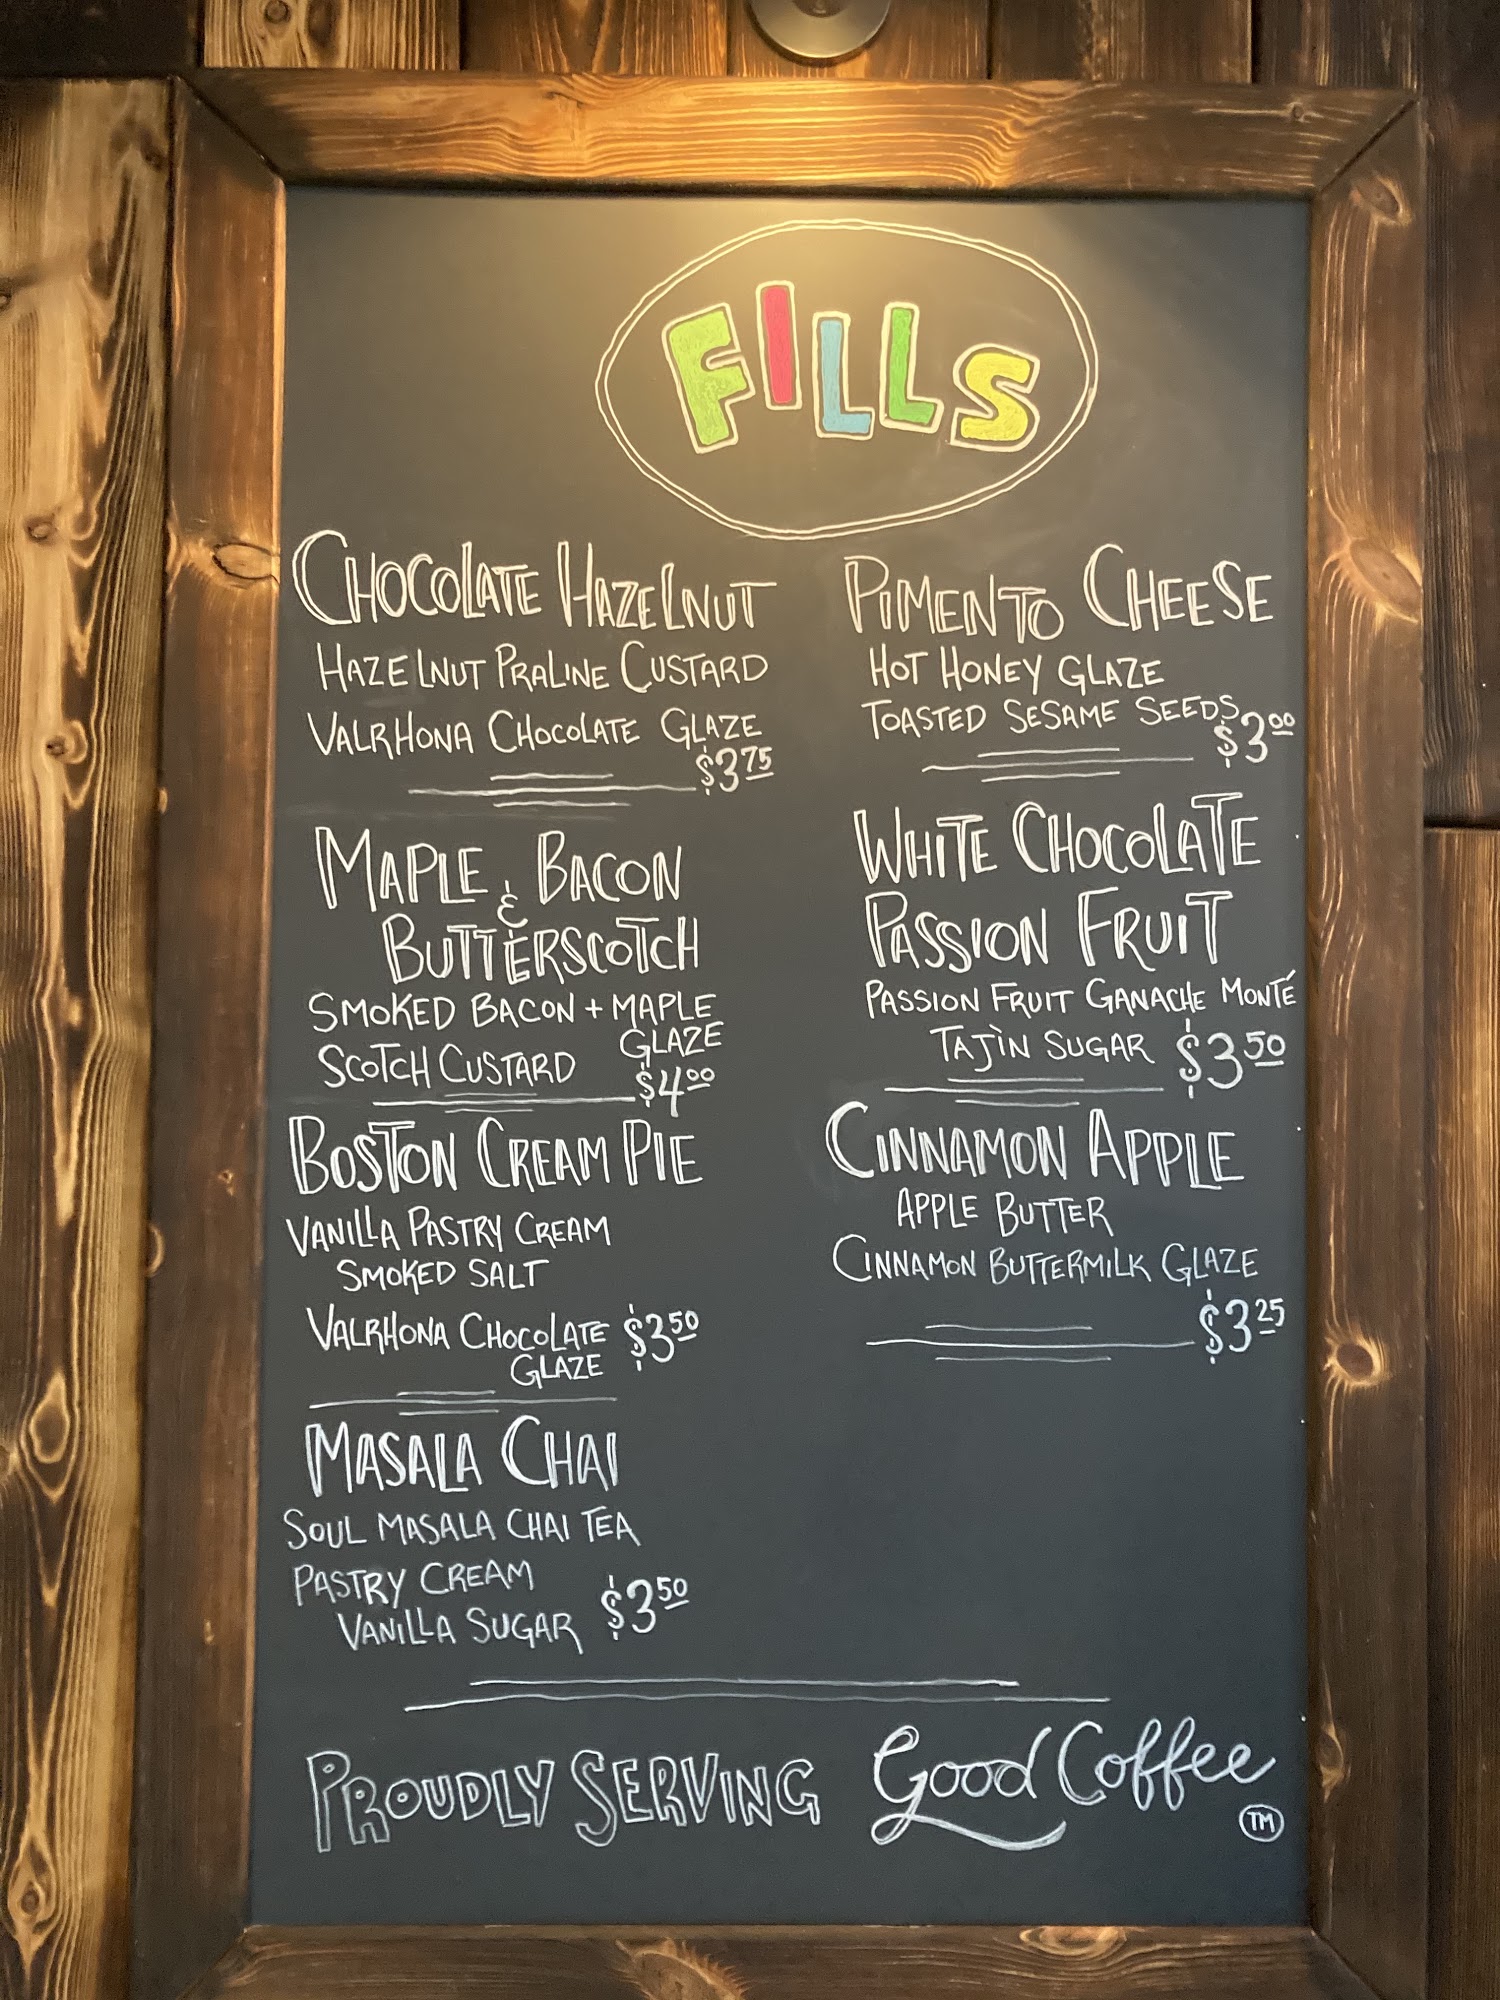 FILLS
CHOCOLATE HAZELNUT
HAZELNUT PRALINE CUSTARD
VALRHONA CHOCOLATE GLAZE
$3.75
MAPLE & BACON
BUTTERSCOTCH
SMOKED BACON + MAPLE
GLAZE
SCOTCH CUSTARD
$4.00
BOSTON CREAM PIE
VANILLA PASTRY CREAM
SMOKED SALT
VALRHONA CHOCOLATE $3.50
GLAZE
MASALA CHAI
SOUL MASALA CHAI TEA
PASTRY CREAM
VANILLA SUGAR $3.50
PIMENTO CHEESE
HOT HONEY GLAZE
TOASTED SESAME SEEDS
$3.00
WHITE CHOCOLATE
PASSION FRUIT
PASSION FRUIT GANACHE MONTÉ
TAJÌN SUGAR $3.50
CINNAMON APPLE
APPLE BUTTER
CINNAMON BUTTERMILK GLAZE
$3.25
PROUDLY SERVING Good Coffee
TM